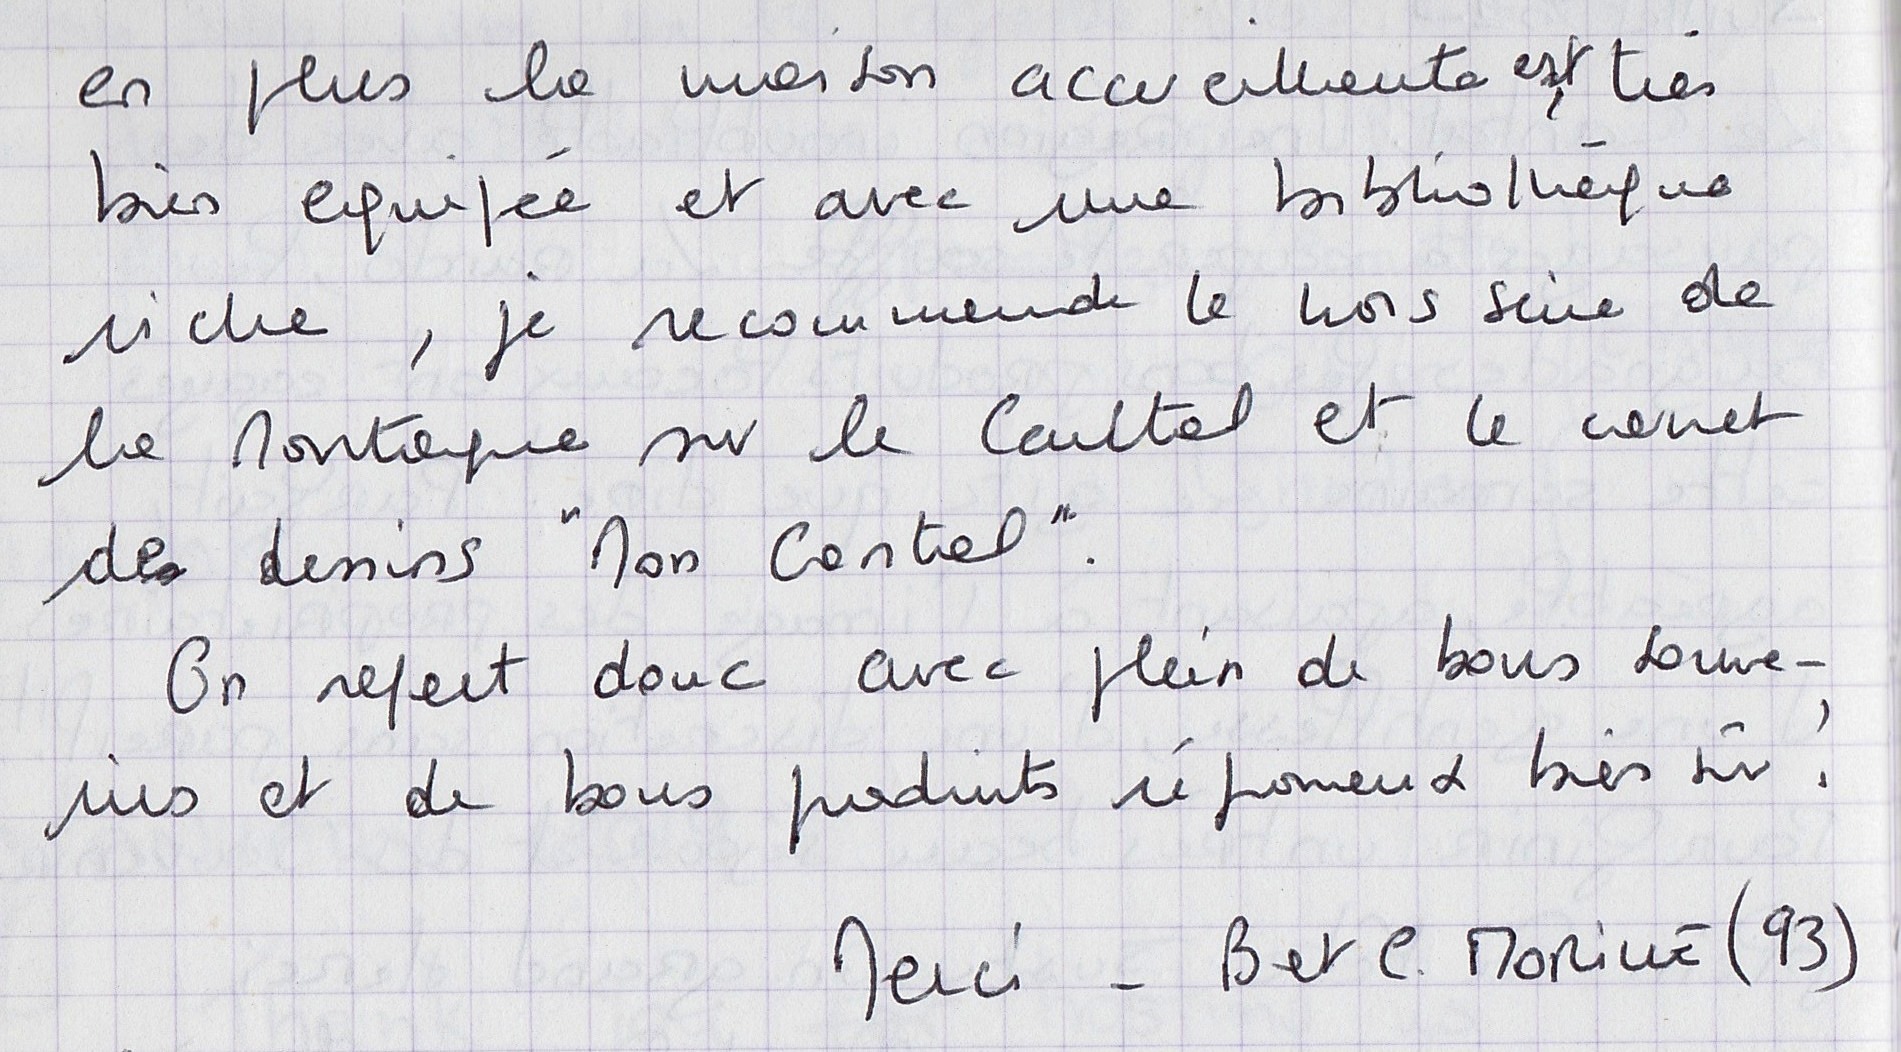 en plus la maison accueillante est très
bien equipée et avec une bibliothèque
riche, je recommande le hors série de
la Montagne sur le Cantal et le carnet
des dessins "Mon Cantal".
On repart donc avec plein de bons souve-
nirs et de bons produits régionaux bien sûr !
Merci - B et C. MORINE (93)